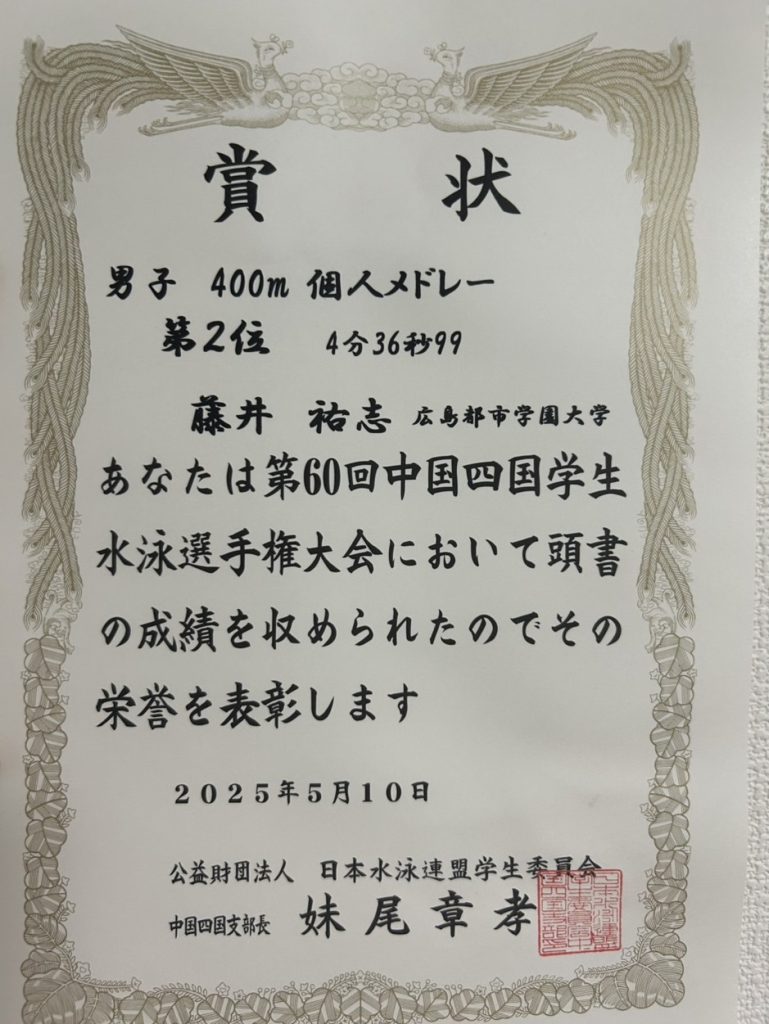 賞状
男子 400m 個人メドレー
第2位 4分36秒99
藤井 祐志 広島都市学園大学
あなたは第60回中国四国学生
水泳選手権大会において頭書
の成績を収められたのでその
栄誉を表彰します
2025年5月10日
公益財団法人 日本水泳連盟学生委員会
中国四国支部長 妹尾章孝